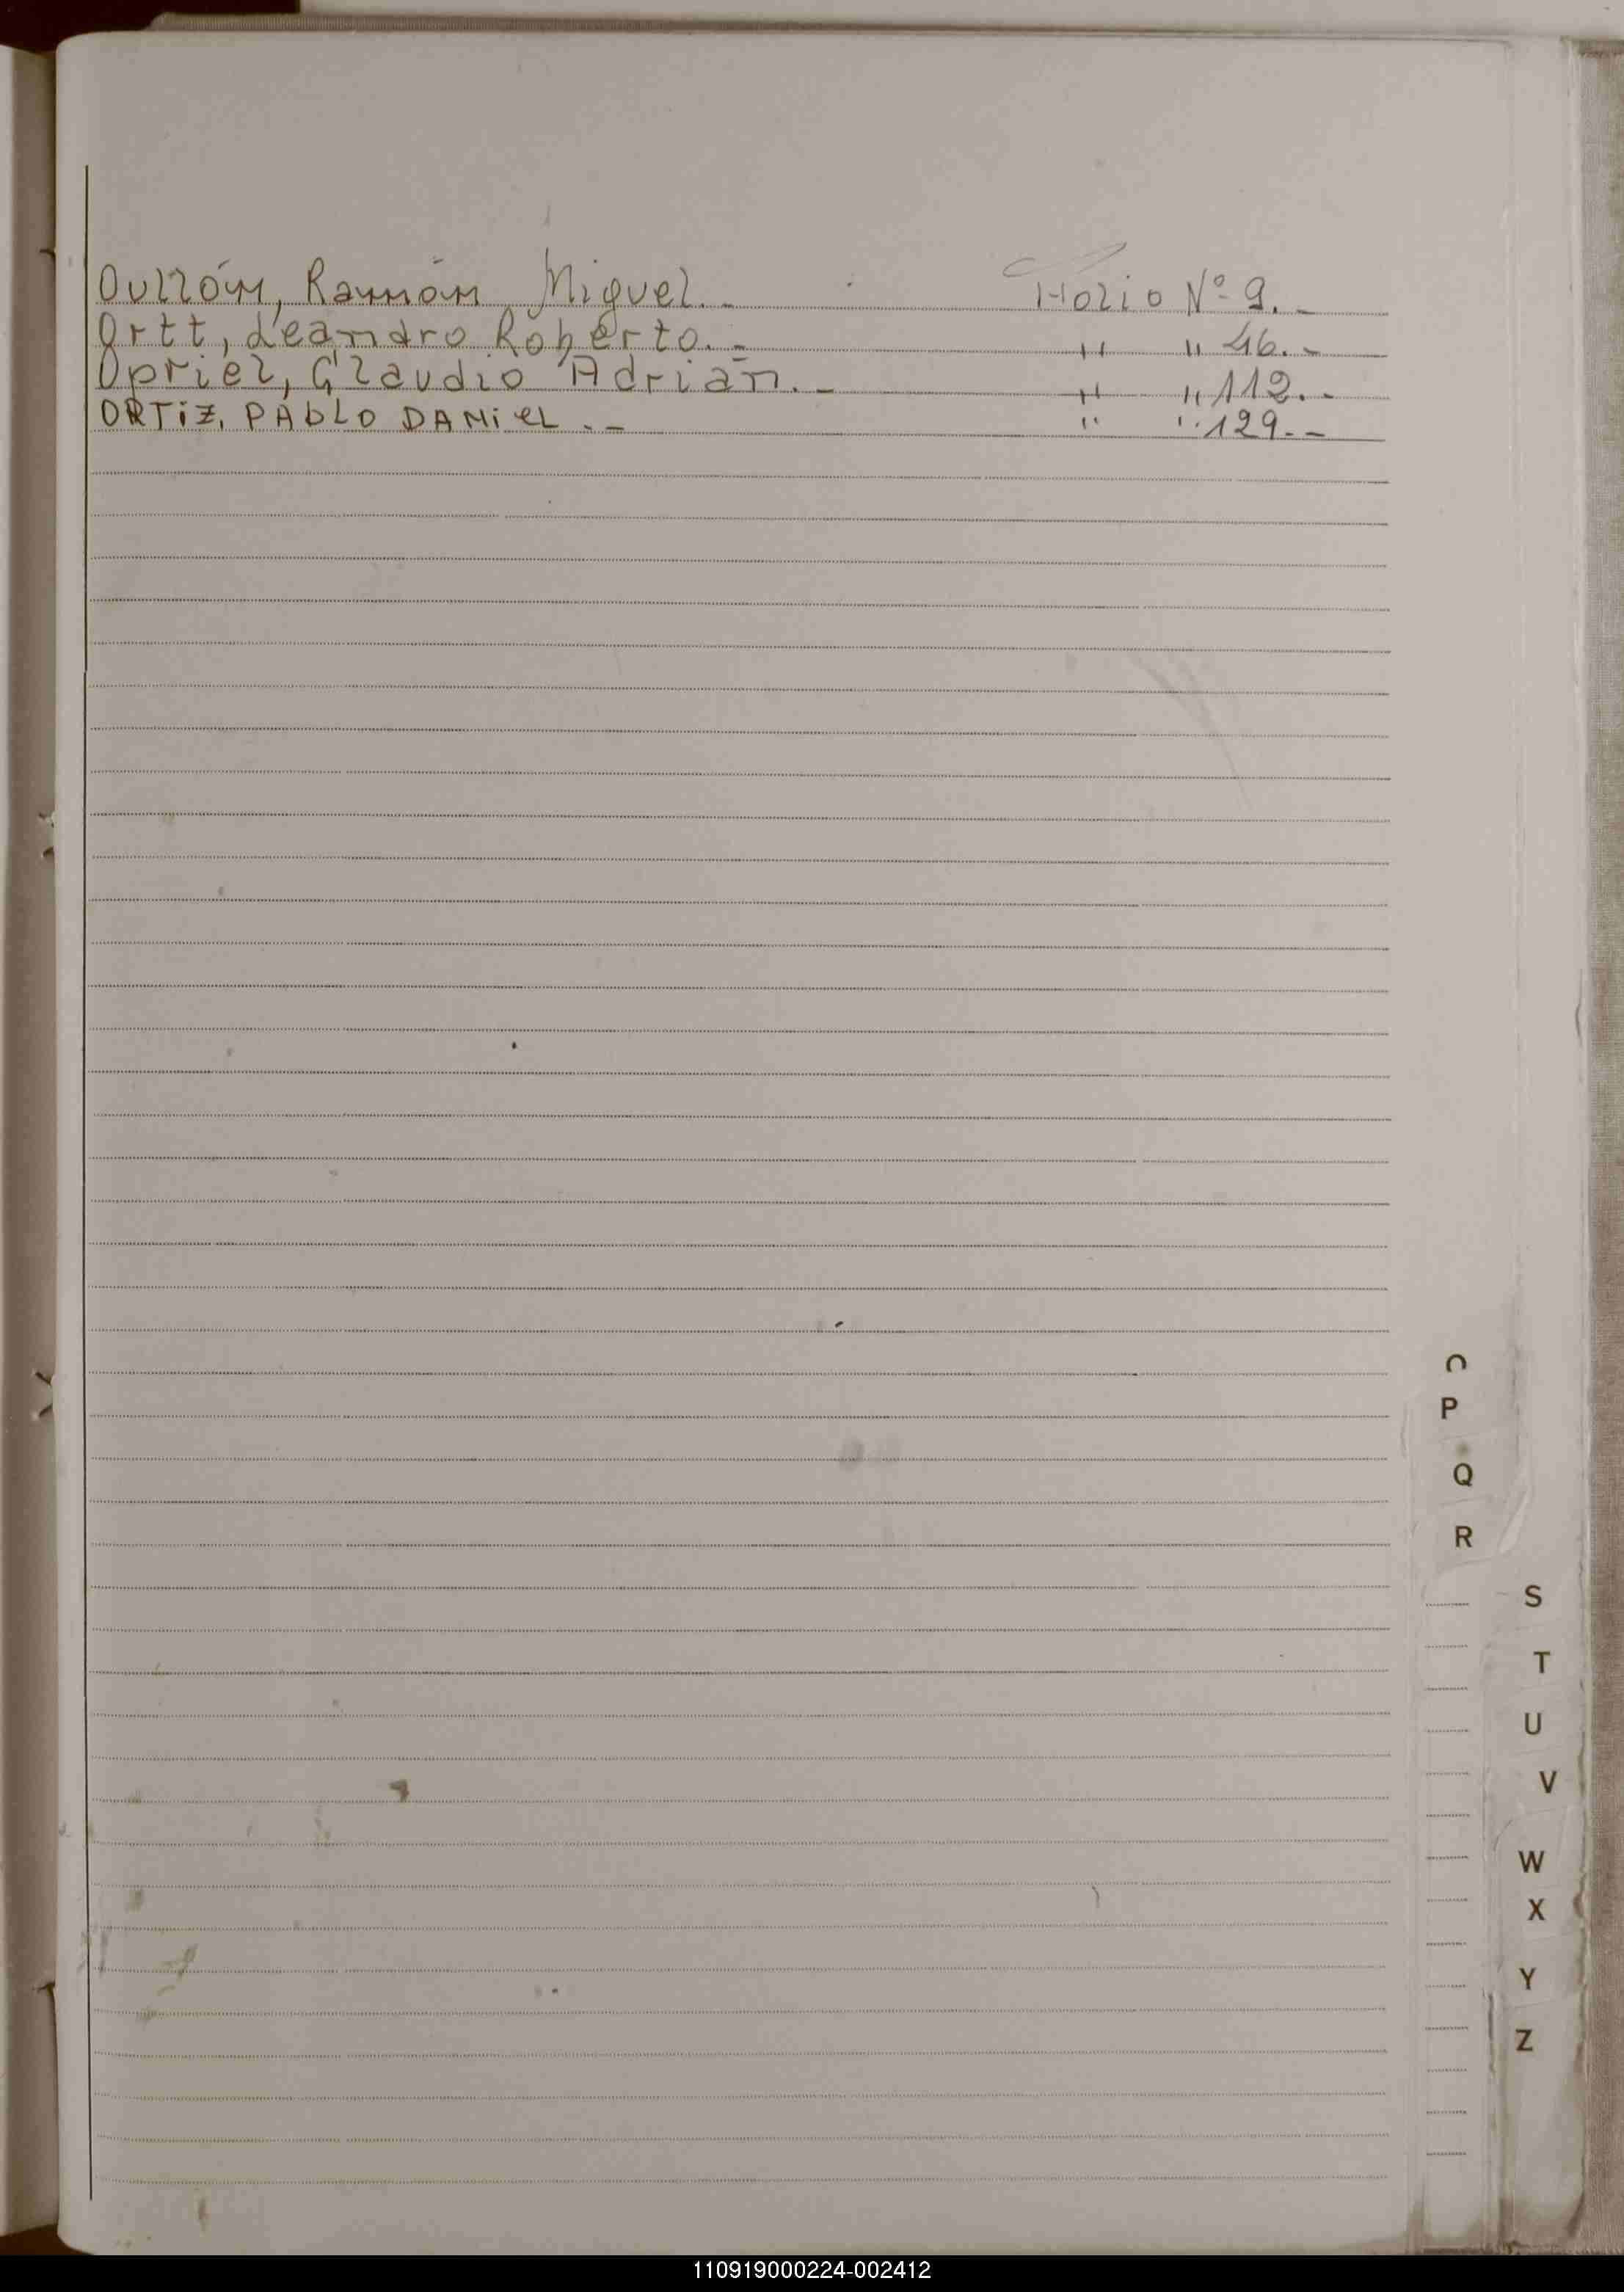 Oullón, Ramón Miguel.- Folio Nº 9.-
Ortt, Leandro Roberto.- " " 46.-
Opriel, Claudio Adrián.- " " 112.-
ORTiZ, PAbLO DANiEL.-- " " 129.--
O
P
Q
R
S
T
U
V
W
X
Y
Z
110919000224-002412